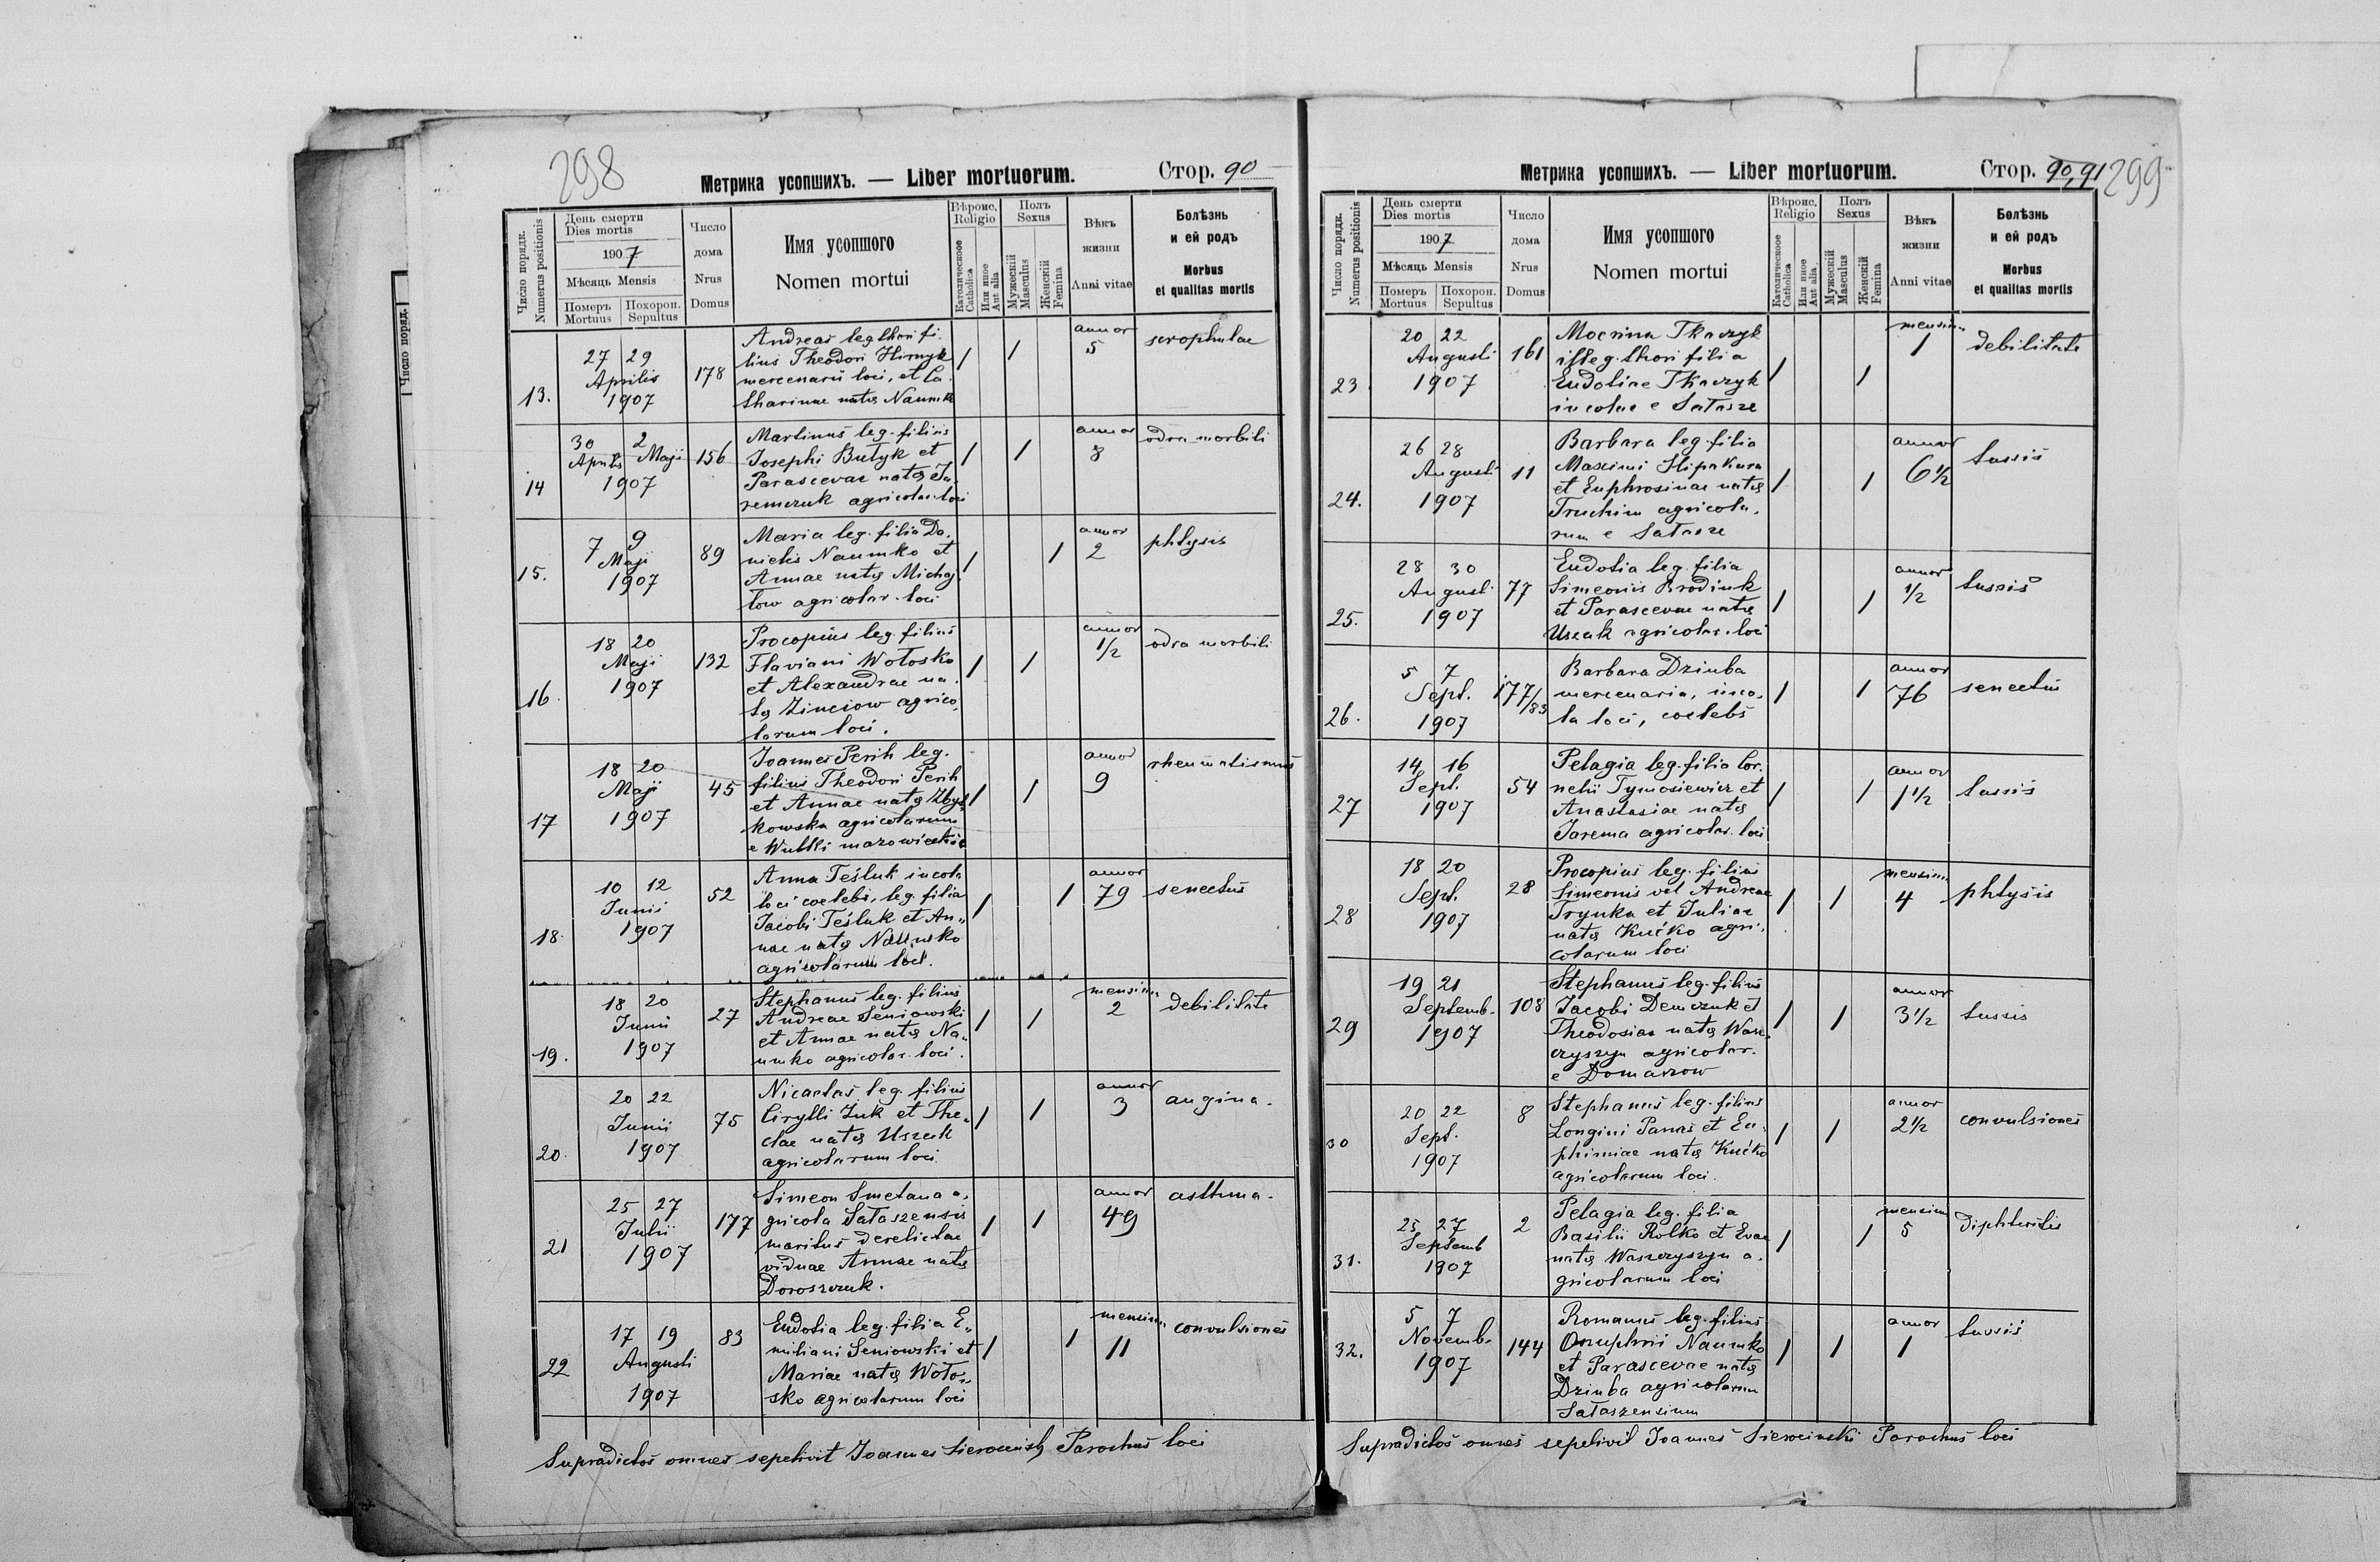 298
Метрика усопшихъ. — Liber mortuorum.
Стор. 90
Число порядк.
Numerus positionis
День смерти
Dies mortis
1907
Мѣсяць Mensis
Померъ Mortuus
Похорон. Sepultus
Число дома
Nrus Domus
Имя усопшого
Nomen mortui
Вѣроис. Religio
Католическоое Catholica
Или иное Aut alia
Полъ Sexus
Мужескій Masculus
Женскій Femina
Вѣкъ жизни
Anni vitae
Болѣзнь и ей родъ
Morbus et qualitas mortis
13.
27 29
Aprilis
1907
178
Andreas leg. thori fi-
lius Theodori Hirnyk
mercenarii loci, et Ca-
tharinae natę Naumko
1 1
annor
5
scrophulae
14
30 2
Aprilis Maji
1907
156
Martinus leg. filius
Josephi Butyk et
Parascevae natę Ja-
remczuk agricolar. loci
1 1
annor
8
odra morbili
15.
7 9
Maji
1907
89
Maria leg. filia Da-
nielis Naumko et
Annae natę Michaj-
łow agricolar. loci
1 1
annor
2
phtysis
16.
18 20
Maji
1907
132
Procopius leg. filius
Flaviani Wołosko
et Alexandrae na-
tę Zinciow agrico-
larum loci.
1 1
annor
1/2
odra morbili
17
18 20
Maji
1907
45
Joannes Perih leg.
filius Theodori Perih
et Annae natę Zbyt-
kowska agricolarum
e Wulki mazowiecki
1 1
annor
9
rheumatismus
18.
10 12
Junii
1907
52
Anna Teśluk incola
loci coelebs, leg. filia
Jacobi Teśluk et An-
nae natę Naumko
agricolarum loci.
1 1
annor
79
senectus
19.
18 20
Junii
1907
27
Stephanus leg. filius
Andreae Seniowski
et Annae natę Na-
umko agricolar. loci.
1 1
mensium
2
debilitate
20.
20 22
Junii
1907
75
Nicaetas leg. filius
Cirylli Zuk et The-
clae natę Uszak
agricolarum loci
1 1
annor
3
angina.
21
25 27
Julii
1907
177
Simeon Smetana a-
gricola Sałaszensis
maritus derelictae
viduae Annae natę
Doroszczuk.
1 1
annor
49
asthma.
22
17 19
Augusti
1907
83
Eudosia leg. filia E-
miliani Seniowski et
Mariae natę Woło-
sko agricolarum loci
1 1
mensium
11
convulsiones
Supradictos omnes sepelivit Joannes Sierociński Parochus loci
Метрика усопшихъ. — Liber mortuorum.
Стор. 90, 91
299
Число порядк.
Numerus positionis
День смерти
Dies mortis
1907
Мѣсяць Mensis
Померъ Mortuus
Похорон. Sepultus
Число дома
Nrus Domus
Имя усопшого
Nomen mortui
Вѣроис. Religio
Католическоое Catholica
Или иное Aut alia
Полъ Sexus
Мужескій Masculus
Женскій Femina
Вѣкъ жизни
Anni vitae
Болѣзнь и ей родъ
Morbus et qualitas mortis
23.
20 22
Augusti
1907
161
Mocrina Tkaczyk
illeg. thori filia
Eudosiae Tkaczyk
incolae e Sałasze
1 1
mensium
1
debilitate
24.
26 28
Augusti
1907
11
Barbara leg. filia
Maximi Hipakura
et Euphrosinae natę
Truchim agricola-
rum e Sałasze
1 1
annor
6 1/2
tussis
25.
28 30
Augusti
1907
77
Eudosia leg. filia
Simeonis Brodiuk
et Parascevae natę
Uszak agricolar. loci
1 1
annor
1/2
tussis
26.
5 7
Sept.
1907
177/83
Barbara Dziuba
mercenaria, inco-
la loci, coelebs
1 1
annor
76
senectus
27
14 16
Sept.
1907
54
Pelagia leg. filia Cor-
nelii Tymosiewicz et
Anastasiae natę
Jarema agricolar. loci
1 1
annor
1 1/2
tussis
28
18 20
Sept.
1907
28
Procopius leg. filius
Simeonis vel Andreae
Trynka et Juliae
natę Kućko agri-
colarum loci
1 1
mensium
4
phtysis
29
19 21
Septemb.
1907
108
Stephanus leg. filius
Jacobi Demczuk et
Theodosiae natę Wasz-
czyszyn agricolar.
e Domaszow
1 1
annor
3 1/2
tussis
30
20 22
Sept.
1907
8
Stephanus leg. filius
Longini Panas et Eu-
phimiae natę Kućko
agricolarum loci.
1 1
annor
2 1/2
convulsiones
31.
25 27
Septemb
1907
2
Pelagia leg. filia
Basilii Rolko et Evae
natę Waszczyszyn a-
gricolarum loci
1 1
mensium
5
diphteritis
32.
5 7
Novemb.
1907
144
Romanus leg. filius
Onuphrii Naumko
et Parascevae natę
Dziuba agricolarum
Sałaszensium
1 1
annor
1
tussis
Supradictos omnes sepelivit Joannes Sierocinski Parochus loci
Число поряд.